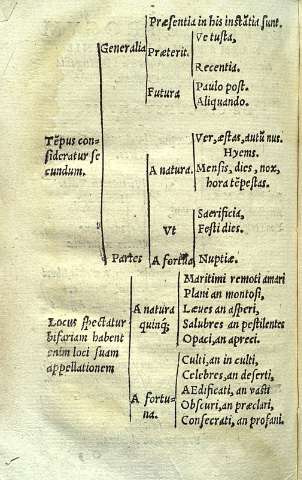 Præsentia in his instãtia sunt.
Generalia
Præterit.
Vetusta,
Recentia.
Futura
Paulo post.
Aliquando.
Tẽpus con
sideratur se
cundum.
Partes
A natura.
Ver, æstas, autũnus.
Hyems.
Mensis, dies, nox,
hora tẽpestas.
Vt
Sacrificia,
Festi dies.
A fortũa,
Nuptiæ.
Locus spectatur
bifariam habent
enim loci suam
appellationem
A natura
quinq;
Maritimi remoti amari
Plani an montosi,
Læues an asperi,
Salubres an pestilentes
Opaci, an aprici.
A fortu-
na.
Culti, an in culti,
Celebres, an deserti,
AEdificati, an vasti
Obscuri, an præclari,
Consecrati, an profani.